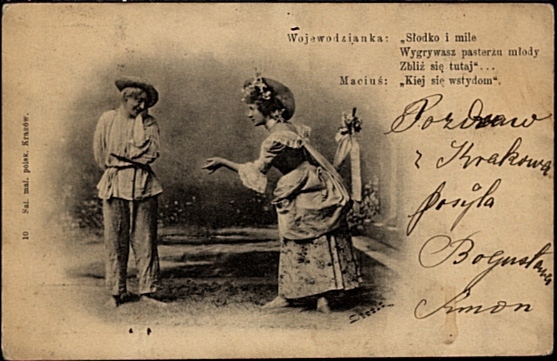 Wojewodzianka: „Słodko i mile
Wygrywasz pasterzu młody
Zbliż się tutaj“...
Maciuś: „Kiej się wstydom“.
Pozdraw
z Krakowa
posyła
Bogusława
Simon
10 Sal. mal. polsk. Kraków.